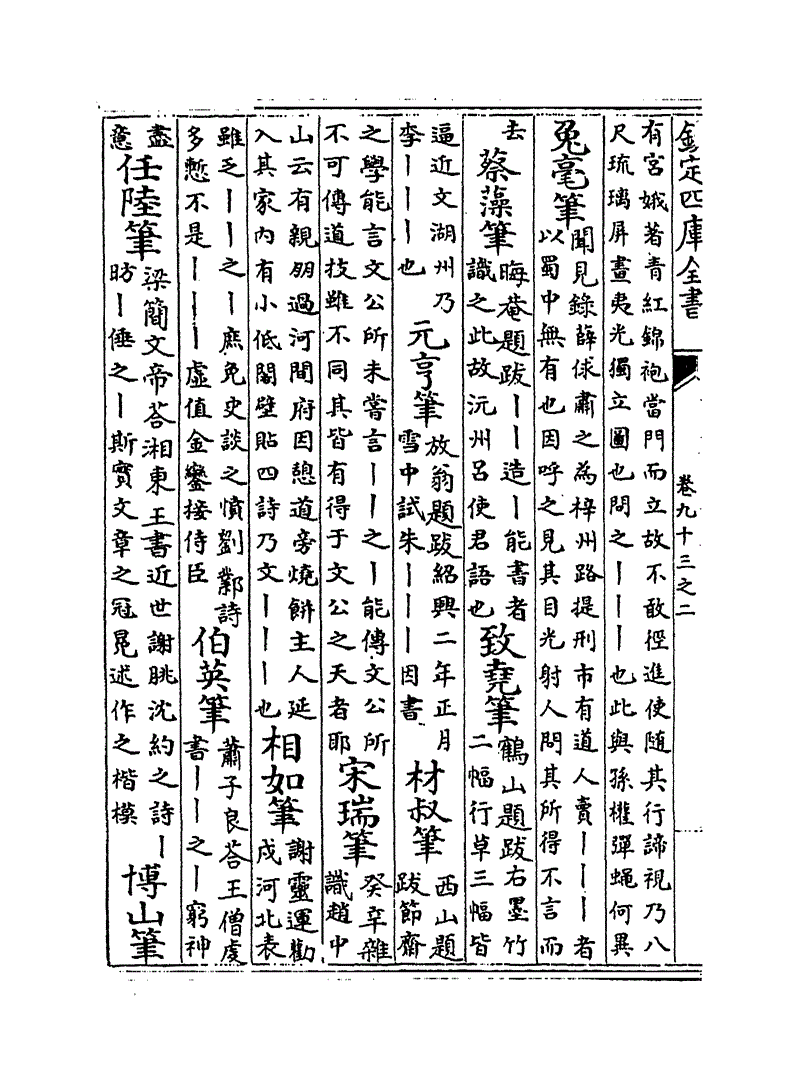 欽定四庫全書
卷九十三之二
有宫娥著青紅錦袍當門而立故不敢徑進使隨其行諦視乃八
尺琉璃屏畫夷光獨立圖也問之丨丨丨也此與孫權彈蠅何異
兔毫筆
聞見錄薛俅肅之為梓州路提刑市有道人賣丨丨丨者
以蜀中無有也因呼之見其目光射人問其所得不言而
去
蔡藻筆
晦菴題跋丨丨造丨能書者
識之此故沅州呂使君語也
致堯筆
鶴山題跋右墨竹
二幅行草三幅皆
逼近文湖州乃
李丨丨丨也
元亨筆
放翁題跋紹興二年正月
雪中試朱丨丨丨因書
材叔筆
西山題
跋節齋
之學能言文公所未嘗言丨丨之丨能傳文公所
不可傳道技雖不同其皆有得于文公之天者耶
宋瑞筆
癸辛雜
識趙中
山云有親朋過河間府因憩道旁燒餅主人延
入其家内有小低閣壁貼四詩乃文丨丨丨也
相如筆
謝靈運勸
戍河北表
雖乏丨丨之丨庶免史談之憤劉鄴詩
多慙不是丨丨丨虛值金鑾接侍臣
伯英筆
蕭子良荅王僧虔
書丨丨之丨窮神
盡
意
任陸筆
梁簡文帝荅湘東王書近世謝朓沈約之詩丨
昉丨倕之丨斯實文章之冠冕述作之楷模
博山筆